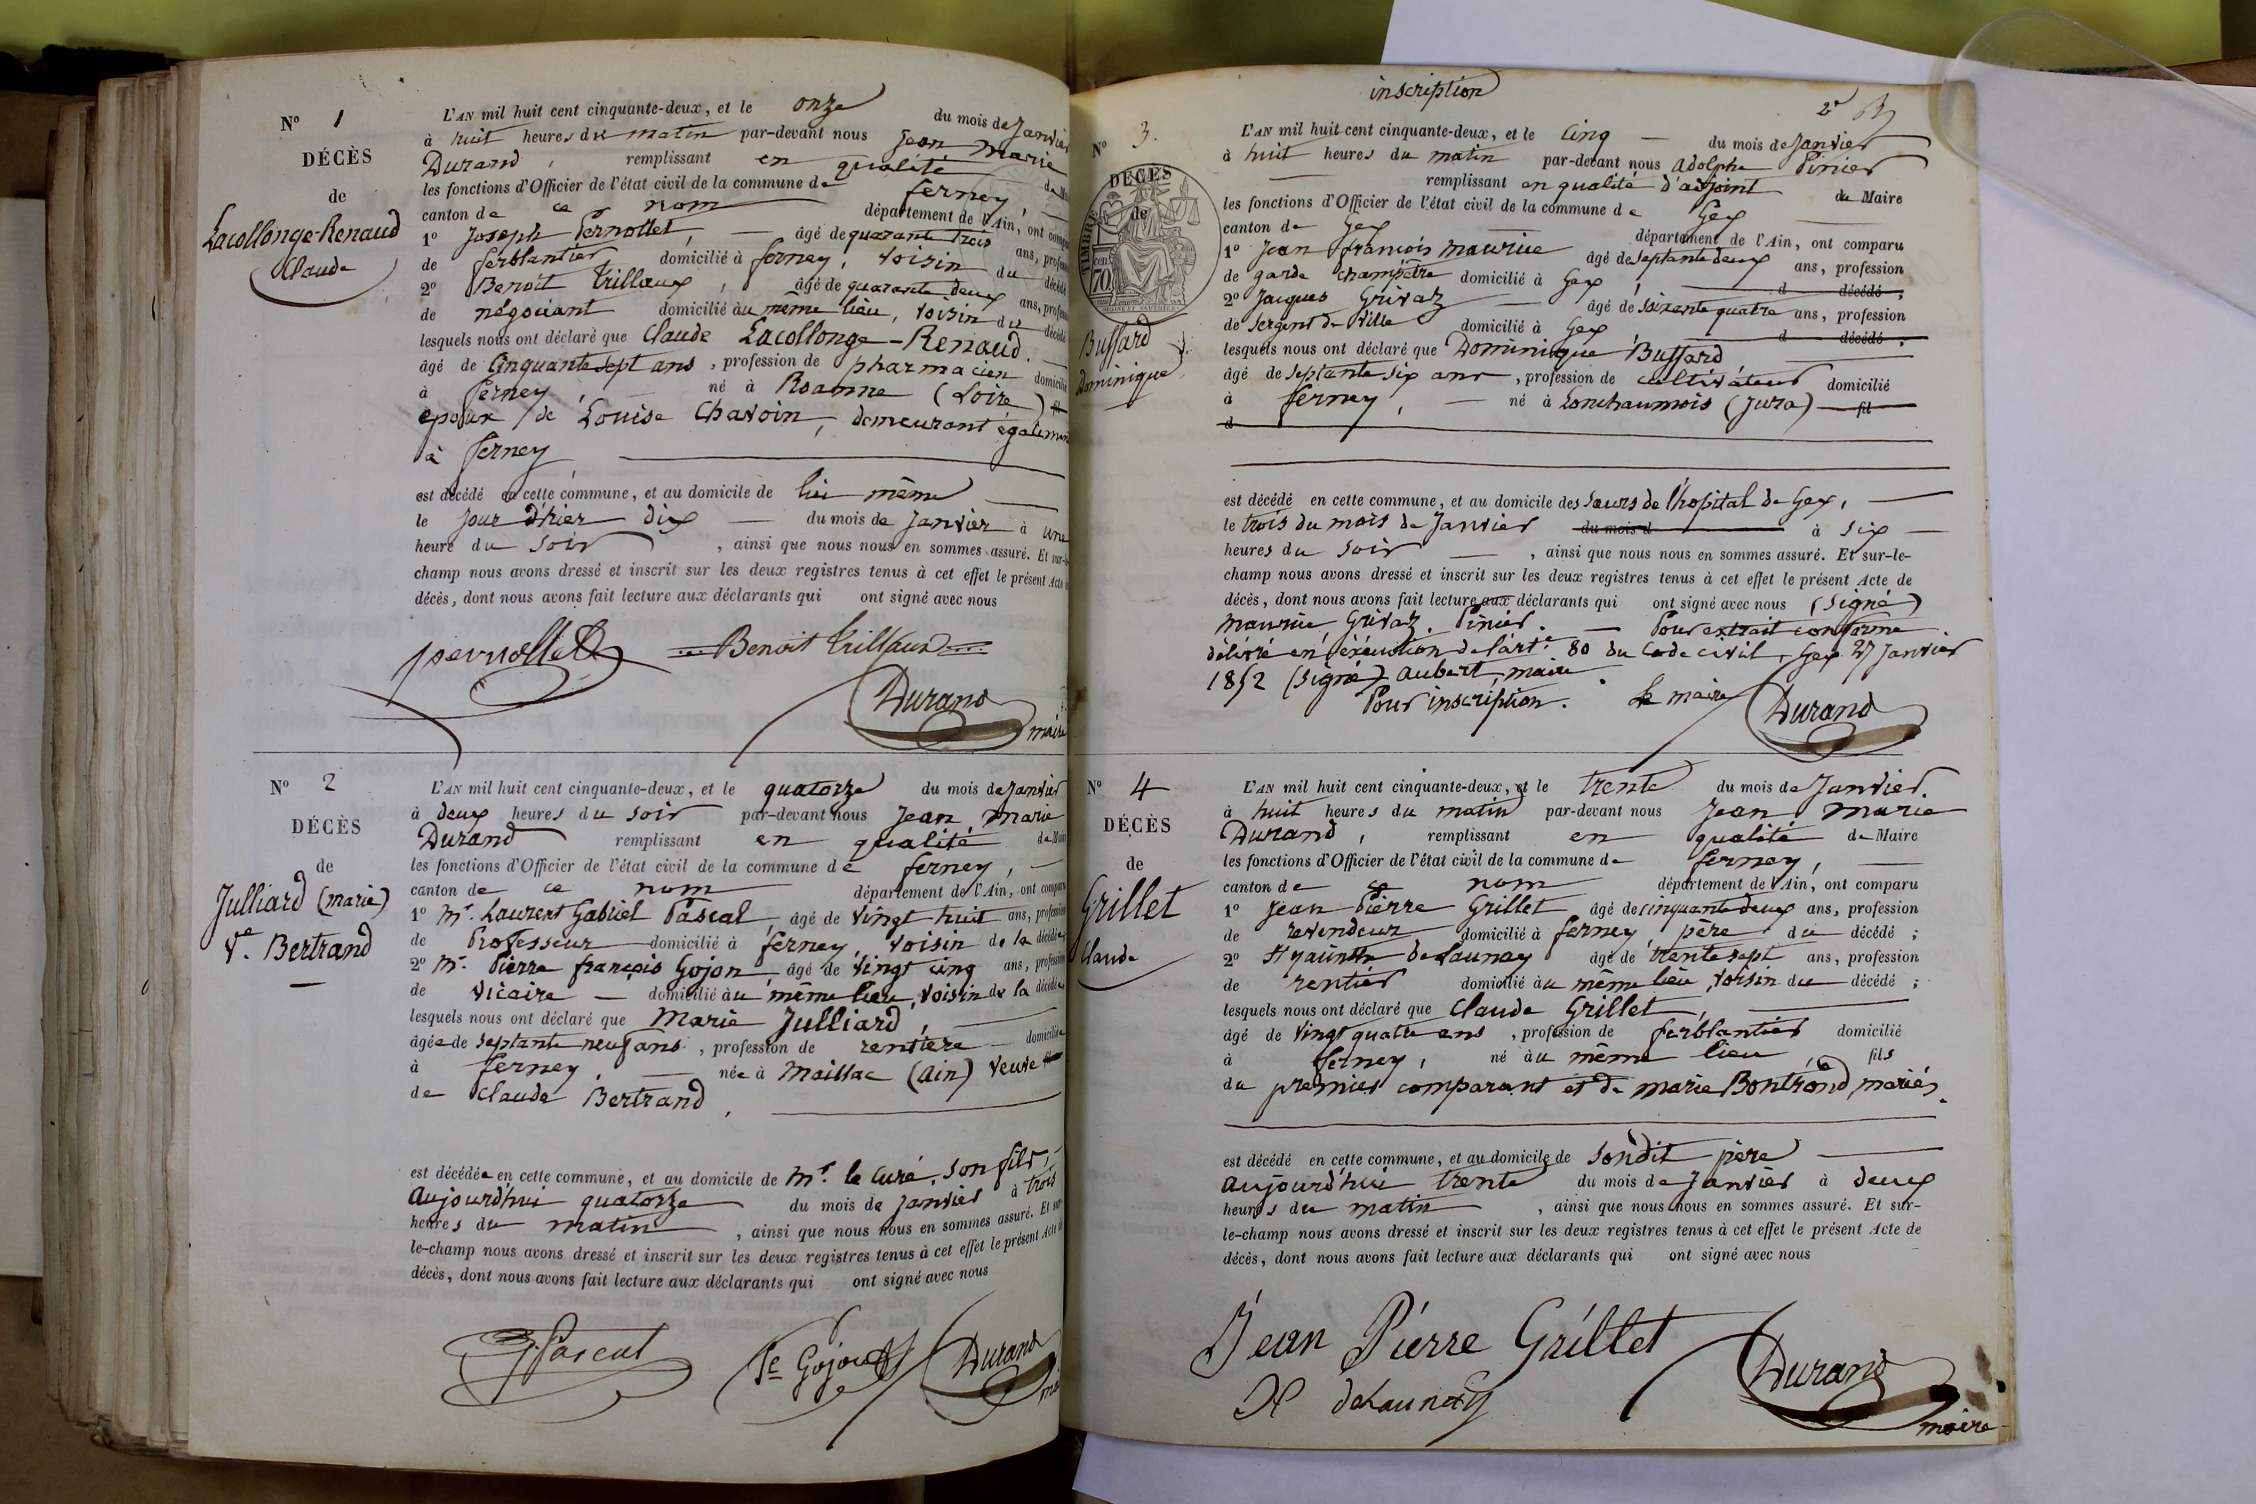 Nº 1
DÉCÈS
de
Lacollonge-Renaud
Claude
L'AN mil huit cent cinquante-deux, et le onze du mois de Janvier
à huit heures du matin par-devant nous Jean Marie
Durand, remplissant en qualité de
les fonctions d'Officier de l'état civil de la commune de ferney,
canton de ce nom département de l'Ain, ont
1º Joseph Pernollet, âgé de quarante trois ans,
de ferblantier domicilié à ferney, voisin du décédé
2º Benoit Trillaux, âgé de quarante deux ans,
de négociant domicilié au même lieu, voisin du décédé
lesquels nous ont déclaré que Claude Lacollonge-Renaud.
âgé de Cinquante sept ans, profession de pharmacien domicilié
à ferney, né à Roanne (Loire)
époux de Louise Chavoin, demeurant également
à ferney
est décédé en cette commune, et au domicile de lui même
le jour d'hier dix du mois de Janvier à une
heure du soir, ainsi que nous nous en sommes assuré. Et
champ nous avons dressé et inscrit sur les deux registres tenus à cet effet le présent Acte
décès, dont nous avons fait lecture aux déclarants qui ont signé avec nous
pernollet Benoit Trillaux
Durand
maire
Nº 2
DÉCÈS
de
Julliard (marie)
Ve. Bertrand
L'AN mil huit cent cinquante-deux, et le quatorze du mois de Janvier
à deux heures du soir par-devant nous Jean Marie
Durand remplissant en qualité de
les fonctions d'Officier de l'état civil de la commune de ferney,
canton de ce nom département de l'Ain, ont
1º Mr. Laurent Gabriel Pascal, âgé de vingt huit ans,
de Professeur domicilié à ferney, voisin de la décédée
2º Mr. Pierre françois Gojon, âgé de vingt cinq ans,
de vicaire domicilié au même lieu, voisin de la décédée
lesquels nous ont déclaré que Marie Julliard,
âgée de septante neuf ans, profession de rentière domiciliée
à ferney, née à Maillac (Ain) veuve
de Claude Bertrand,
est décédée en cette commune, et au domicile de Mr. le curé, son fils,
aujourd'hui quatorze du mois de Janvier à trois
heures du matin, ainsi que nous nous en sommes assuré. Et
le-champ nous avons dressé et inscrit sur les deux registres tenus à cet effet le présent Acte
décès, dont nous avons fait lecture aux déclarants qui ont signé avec nous
Pascal Gojon Durand
inscription
2e
Nº 3.
DÉCÈS
de
TIMBRE
70
Buffard
Dominique
L'AN mil huit cent cinquante-deux, et le cinq du mois de Janvier
à huit heures du matin par-devant nous Adolphe Pinier
remplissant en qualité d'adjoint du Maire
les fonctions d'Officier de l'état civil de la commune de Gex
canton de Gex département de l'Ain, ont comparu
1º Jean françois Maurice âgé de septante deux ans, profession
de garde champêtre domicilié à Gex, d décédé;
2º Jacques Grivaz âgé de soixante quatre ans, profession
de sergent de ville domicilié à Gex d décédé;
lesquels nous ont déclaré que Dominique Buffard
âgé de septante six ans, profession de cultivateur domicilié
à ferney, né à Lonchaumois (Jura) fil
d
est décédé en cette commune, et au domicile des sœurs de l'hopital de Gex,
le trois du mois de Janvier du mois d à six
heures du soir, ainsi que nous nous en sommes assuré. Et sur-le-
champ nous avons dressé et inscrit sur les deux registres tenus à cet effet le présent Acte de
décès, dont nous avons fait lecture aux déclarants qui ont signé avec nous (signé)
Maurice Grivaz. Pinier. Pour extrait conforme
délivré en exécution de l'arte. 80 du Code civil, Gex 27 Janvier
1852 (signé) Aubert, maire.
Pour inscription. Le maire Durand
Nº 4
DÉCÈS
de
Grillet
Claude
L'AN mil huit cent cinquante-deux, et le trente du mois de Janvier.
à huit heures du matin par-devant nous Jean Marie
Durand, remplissant en qualité de Maire
les fonctions d'Officier de l'état civil de la commune de ferney,
canton de ce nom département de l'Ain, ont comparu
1º Jean Pierre Grillet âgé de cinquante deux ans, profession
de revendeur domicilié à ferney, père du décédé;
2º Hyacinthe DeLaunay âgé de trente sept ans, profession
de rentier domicilié au même lieu, voisin du décédé;
lesquels nous ont déclaré que Claude Grillet,
âgé de vingt quatre ans, profession de ferblantier domicilié
à ferney, né au même lieu, fils
du premier comparant et de marie Bontrond, mariés.
est décédé en cette commune, et au domicile de sondit père
aujourd'hui trente du mois de Janvier à deux
heures du matin, ainsi que nous nous en sommes assuré. Et sur-
le-champ nous avons dressé et inscrit sur les deux registres tenus à cet effet le présent Acte de
décès, dont nous avons fait lecture aux déclarants qui ont signé avec nous
Jean Pierre Grillet
H deLaunay Durand
maire